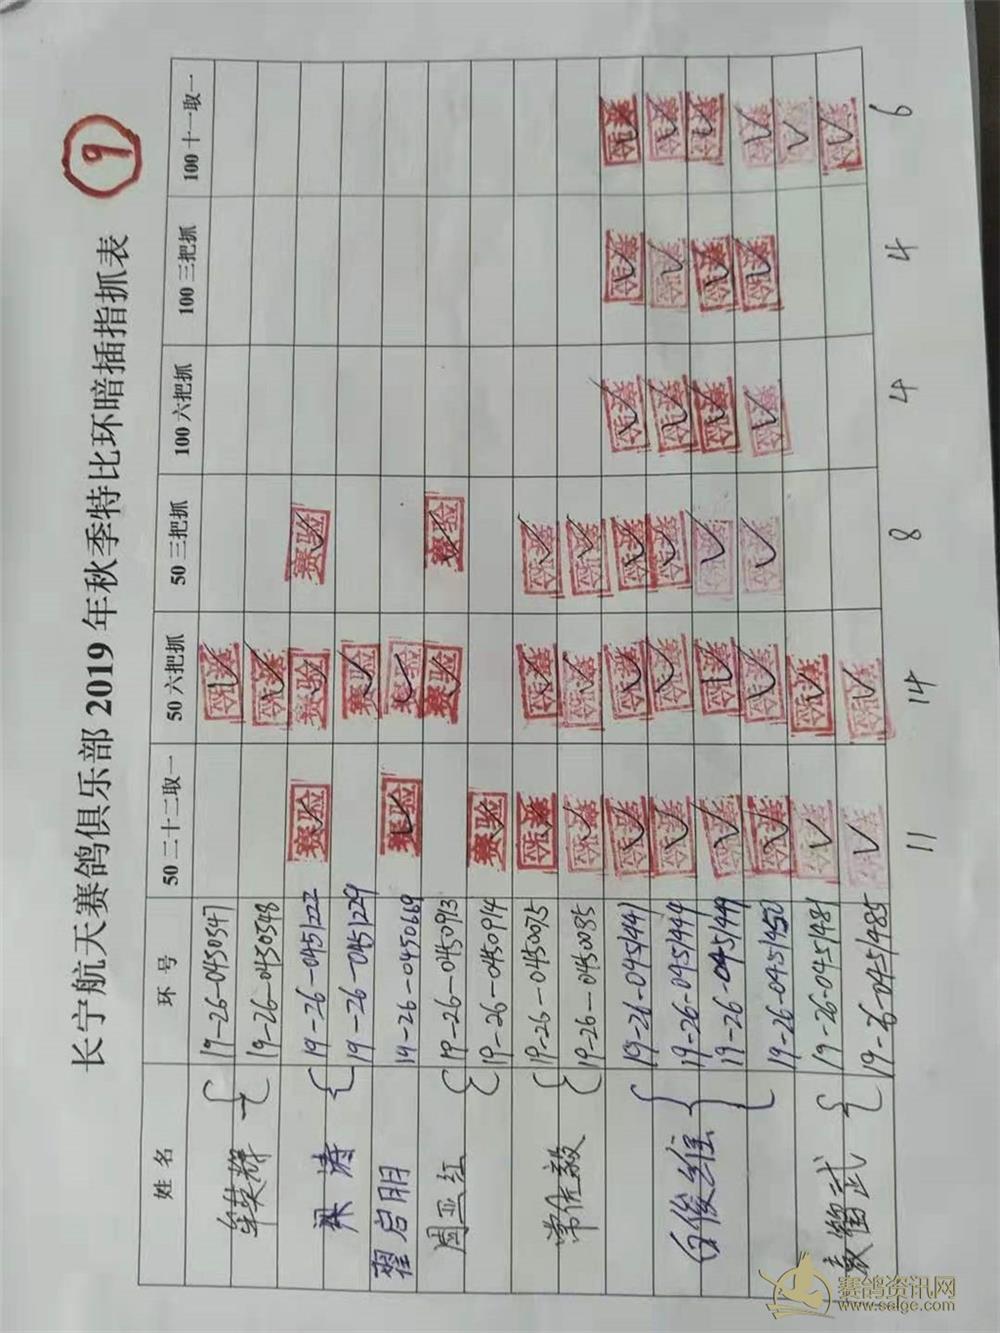 长宁航天赛鸽俱乐部 2019 年秋季特比环暗插指抓表
9
姓 名 环 号 50 二十二取一 50 六把抓 50 三把抓 100 六把抓 100 三把抓 100 十一取一
牟英辉 19-26-0450547 赛验
19-26-0450548 赛验
梁涛 19-26-0451222 赛验 赛验 赛验
19-26-0451229 赛验
翟启明 19-26-0450669 赛验 赛验
周亚红 19-26-0450913 赛验 赛验
19-26-0450914 赛验
常佐毅 19-26-0450075 赛验 赛验 赛验
19-26-0450085 赛验 赛验 赛验
白俊维 19-26-0451441 赛验 赛验 赛验 赛验 赛验 赛验
19-26-0451444 赛验 赛验 赛验 赛验 赛验 赛验
19-26-0451449 赛验 赛验 赛验 赛验 赛验 赛验
19-26-0451450 赛验 赛验 赛验 赛验 赛验 赛验
武 19-26-0451481 赛验 赛验 赛验
19-26-0451485 赛验 赛验 赛验
11 14 8 4 4 6
赛鸽资讯网
www.saige.com